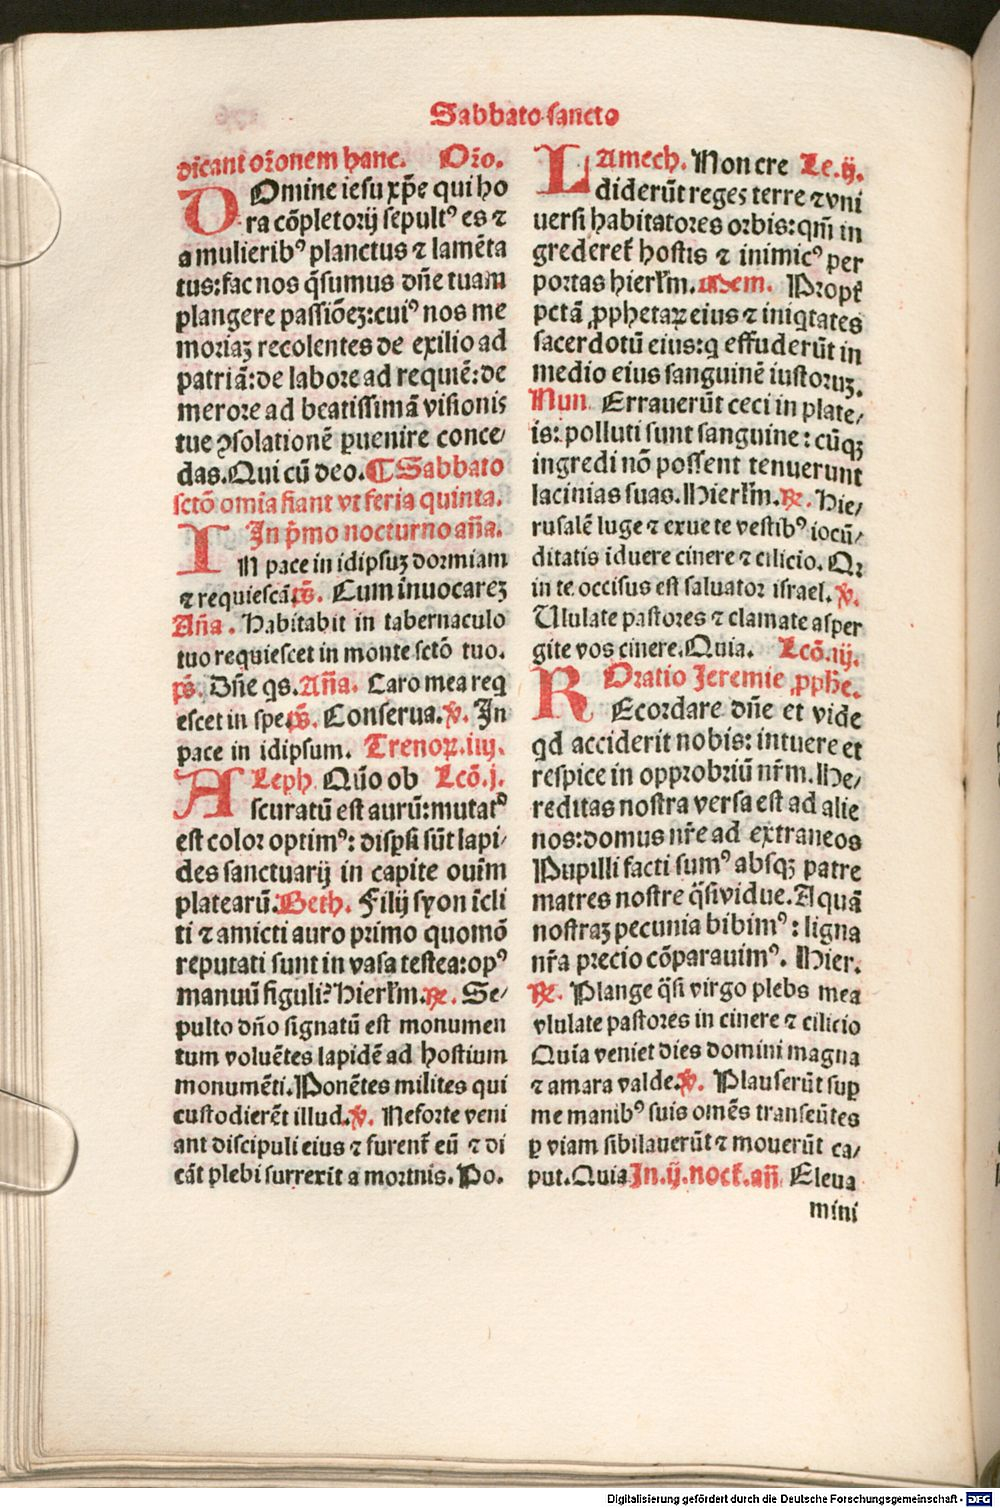 Sabbato sancto
dicant orōnem hanc. Orō.
DOmine iesu xp̄e qui ho
ra cōpletorij sepultꝰ es ⁊
a mulieribꝰ planctus ⁊ lamēta
tus: fac nos q̄sumus dn̄e tuam
plangere passiōeꝫ: cuiꝰ nos me
moriaꝫ recolentes de exilio ad
patriā: de labore ad requiē: de
merore ad beatissimā visionis
tue ꝯsolationē ꝑuenire conce/
das. Qui cū deo. ¶ Sabbato
sctō omīa fiant vt feria quinta.
In p̄mo nocturno aña.
IN pace in idipsuꝫ dormiam
⁊ requiescā. p̄s. Cum inuocareꝫ
Aña. Habitabit in tabernaculo
tuo requiescet in monte sctō tuo.
p̄s. Dn̄e qs. Aña. Caro mea req
escet in spe. p̄s. Conserua. ℣. In
pace in idipsum. Trenoꝝ. iiij.
ALeph Quō ob Lcō. j.
scuratū est aurū: mutatꝰ
est color optimꝰ: disꝑsi sūt lapi/
des sanctuarij in capite ouīm
platearū. Beth. Filij syon īcli
ti ⁊ amicti auro primo quomō
reputati sunt in vasa testea: opꝰ
manuū figuli? Hierl̄m. ℟. Se/
pulto dn̄o signatū est monumen
tum voluētes lapidē ad hostium
monumēti. Ponētes milites qui
custodierēt illud. ℣. Ne forte veni
ant discipuli eius ⁊ furent̄ eū ⁊ di
cāt plebi surrexit a mortnis. Po.
LAmech. Non cre Le. ij.
diderūt reges terre ⁊ vni
uersi habitatores orbis: qm̄ in
grederet̄ hostis ⁊ inimicꝰ per
portas hierl̄m. Mem. Propt̄
pctā ꝓphetaꝝ eius ⁊ iniqtates
sacerdotū eius: q effuderūt in
medio eius sanguinē iustoruꝫ.
Nun Errauerūt ceci in plate/
is: polluti sunt sanguine: cūqꝫ
ingredi nō possent tenuerunt
lacinias suas. Hierl̄m. ℟. Hie/
rusalē luge ⁊ exue te vestibꝰ iocū/
ditatis iduere cinere ⁊ cilicio. Qr
in te occisus est saluator israel. ℣.
Ululate pastores ⁊ clamate asper
gite vos cinere. Quia. Lcō. iij.
Oratio Jeremie ꝓphe.
REcordare dn̄e et vide
qd acciderit nobis: intuere et
respice in opprobriū nr̄m. He/
reditas nostra versa est ad alie
nos: domus nr̄e ad extraneos
Pupilli facti sumꝰ absqꝫ patre
matres nostre q̄si vidue. Aquā
nostraꝫ pecunia bibimꝰ: ligna
nr̄a precio cōparauimꝰ. Hier.
℟. Plange q̄si virgo plebs mea
vlulate pastores in cinere ⁊ cilicio
Quia veniet dies domini magna
⁊ amara valde. ℣. Plauserūt suꝑ
me manibꝰ suis omēs transeūtes
ꝑ viam sibilauerūt ⁊ mouerūt ca/
put. Quia In. ij. noct̄. añ Eleua
mini
Digitalisierung gefördert durch die Deutsche Forschungsgemeinschaft - DFG